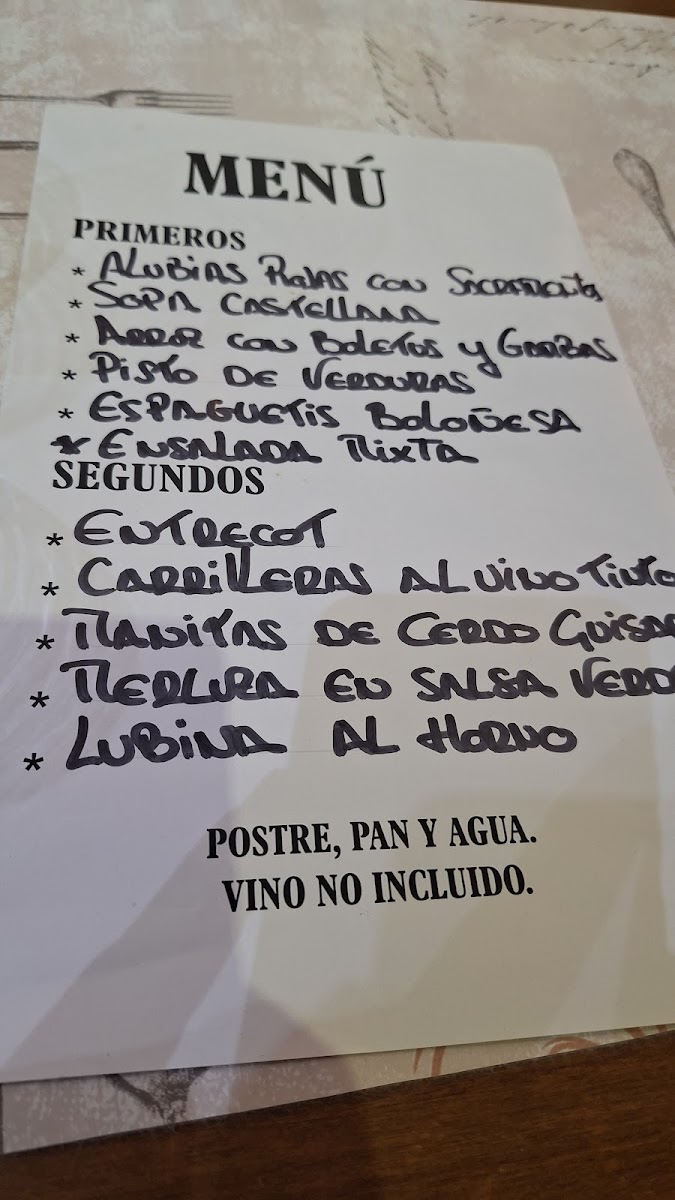 MENÚ
PRIMEROS
* ALUBIAS ROJAS CON SACRAMENTOS
* SOPA CASTELLANA
* ARROZ CON BOLETUS Y GAMBAS
* PISTO DE VERDURAS
* ESPAGUETIS BOLOÑESA
* ENSALADA MIXTA
SEGUNDOS
* ENTRECOT
* CARRILLERAS AL VINO TINTO
* MANITAS DE CERDO GUISA
* MERLUZA EN SALSA VERD
* LUBINA AL HORNO
POSTRE, PAN Y AGUA.
VINO NO INCLUIDO.